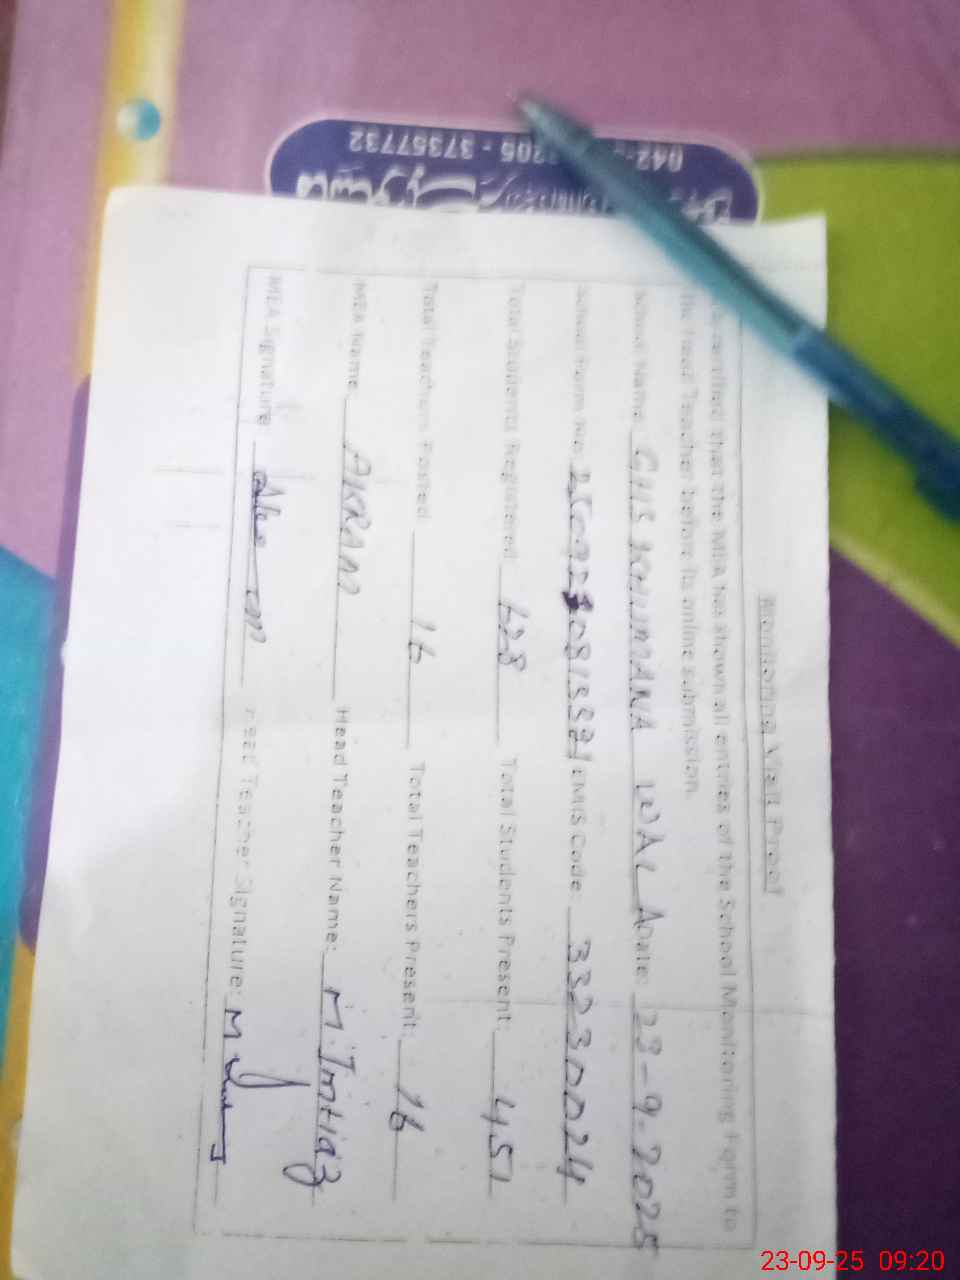 042- 205 - 37357732
Monitoring Visit Proof
certified that the MEA has shown all entries of the School Monitoring Form to
the Head Teacher before its online submission.
School Name: GHS KHUMANA WALA Date: 23-9-2025
School Form No: EMIS Code: 33230024
Total Students Registered: 628 Total Students Present: 451
Total Teachers Posted: 16 Total Teachers Present: 16
MEA Name: AKRAM Head Teacher Name: M. Imtiaz
MEA Signature: Head Teacher Signature: M
23-09-25 09:20